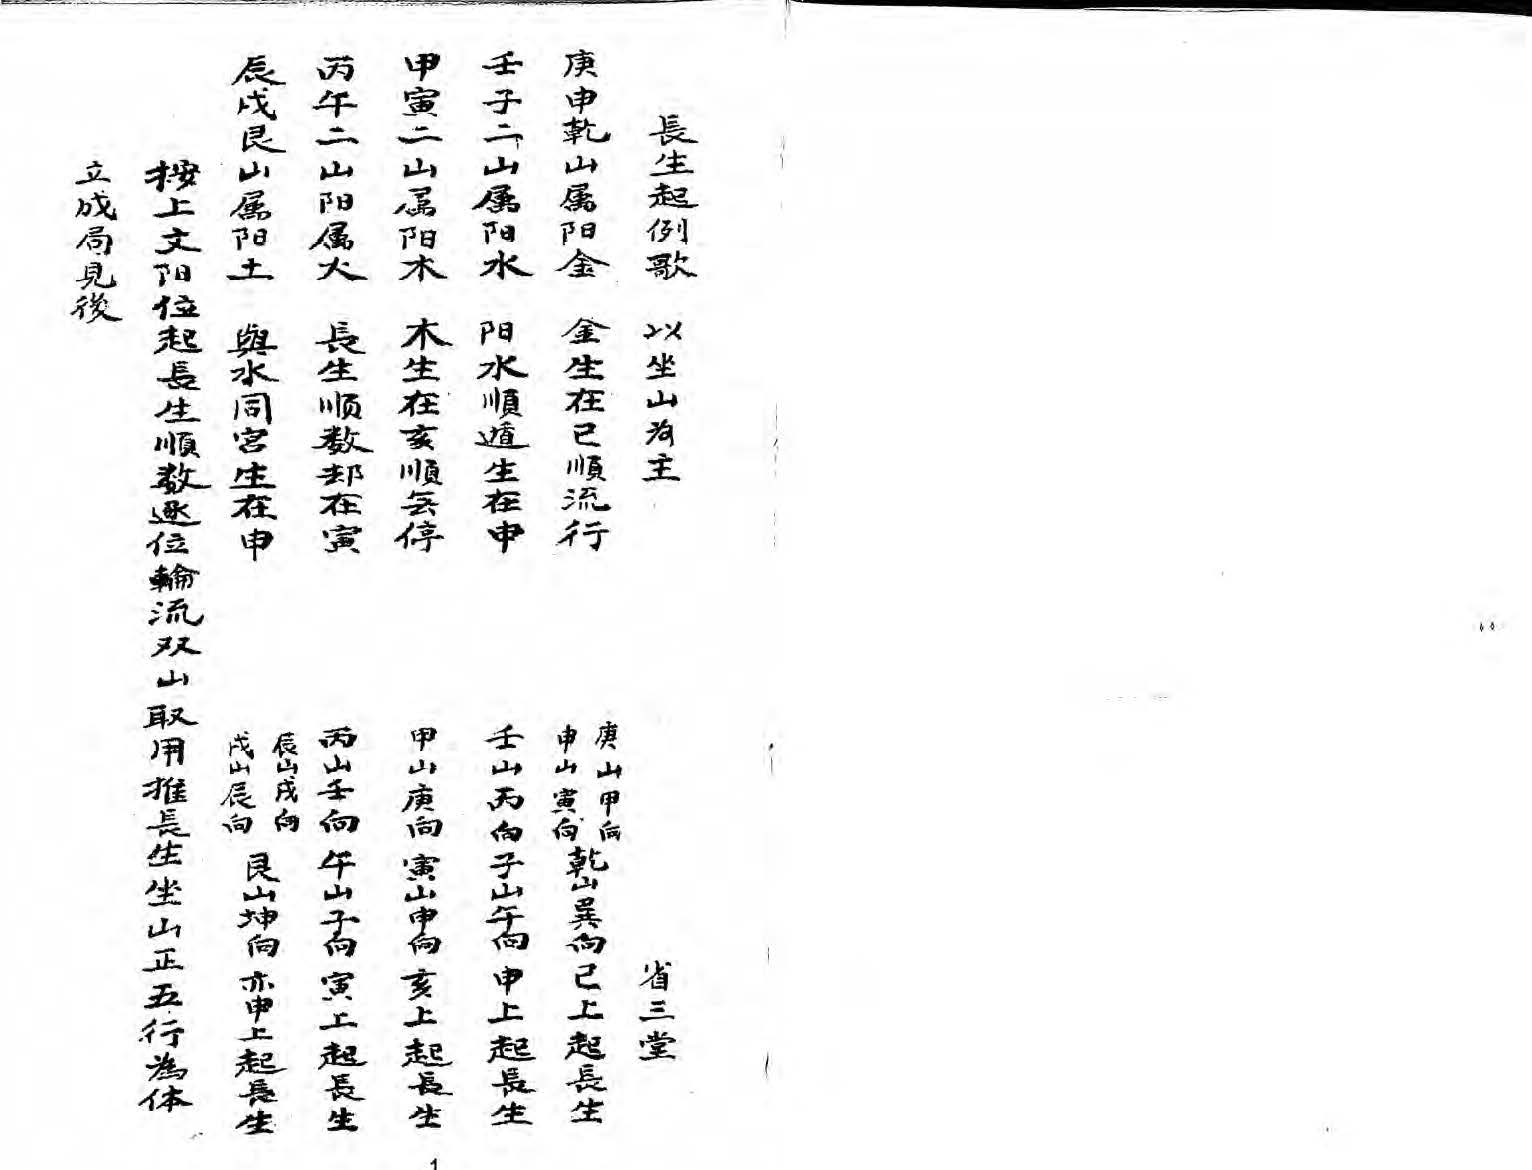 長生起例歌 以坐山为主 省三堂
庚申乾山属阳金 金生在巳順流行 庚山甲向 申山寅向 乾山巽向巳上起長生
壬子二山属阳水 阳水順遁生在申 壬山丙向子山午向申上起長生
甲寅二山属阳木 木生在亥順无停 甲山庚向寅山申向亥上起長生
丙午二山阳属火 長生顺数却在寅 丙山壬向午山子向寅上起長生
辰戌艮山属阳土 與水同宮生在申 辰山戌向 戌山辰向 艮山坤向亦申上起長生
按上文阳位起長生順数逐位輪流双山取用推長生坐山正五行為体
立成局見後
1